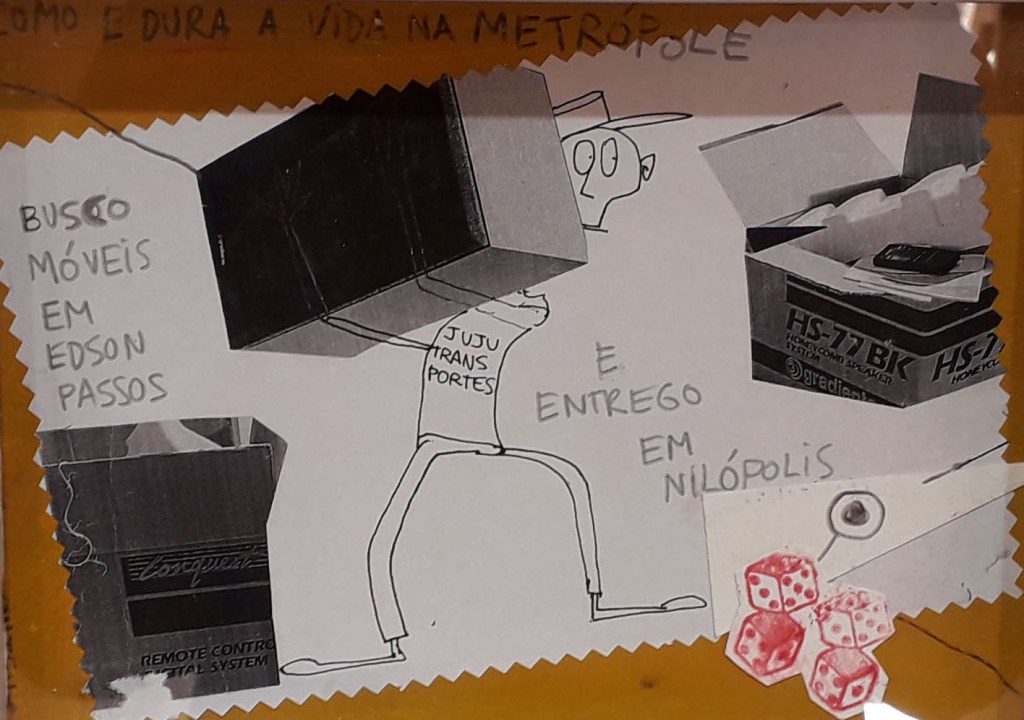 COMO E DURA A VIDA NA METRÓPOLE
BUSCO
MÓVEIS
EM
EDSON
PASSOS
JUJU
TRANS
PORTES
E
ENTREGO
EM
NILÓPOLIS
HS-77BK
HONEYCOMB SPEAKER
SYSTEM
gradiente
HS-7
HONEYC
Conquest
REMOTE CONTRO
DIGITAL SYSTEM